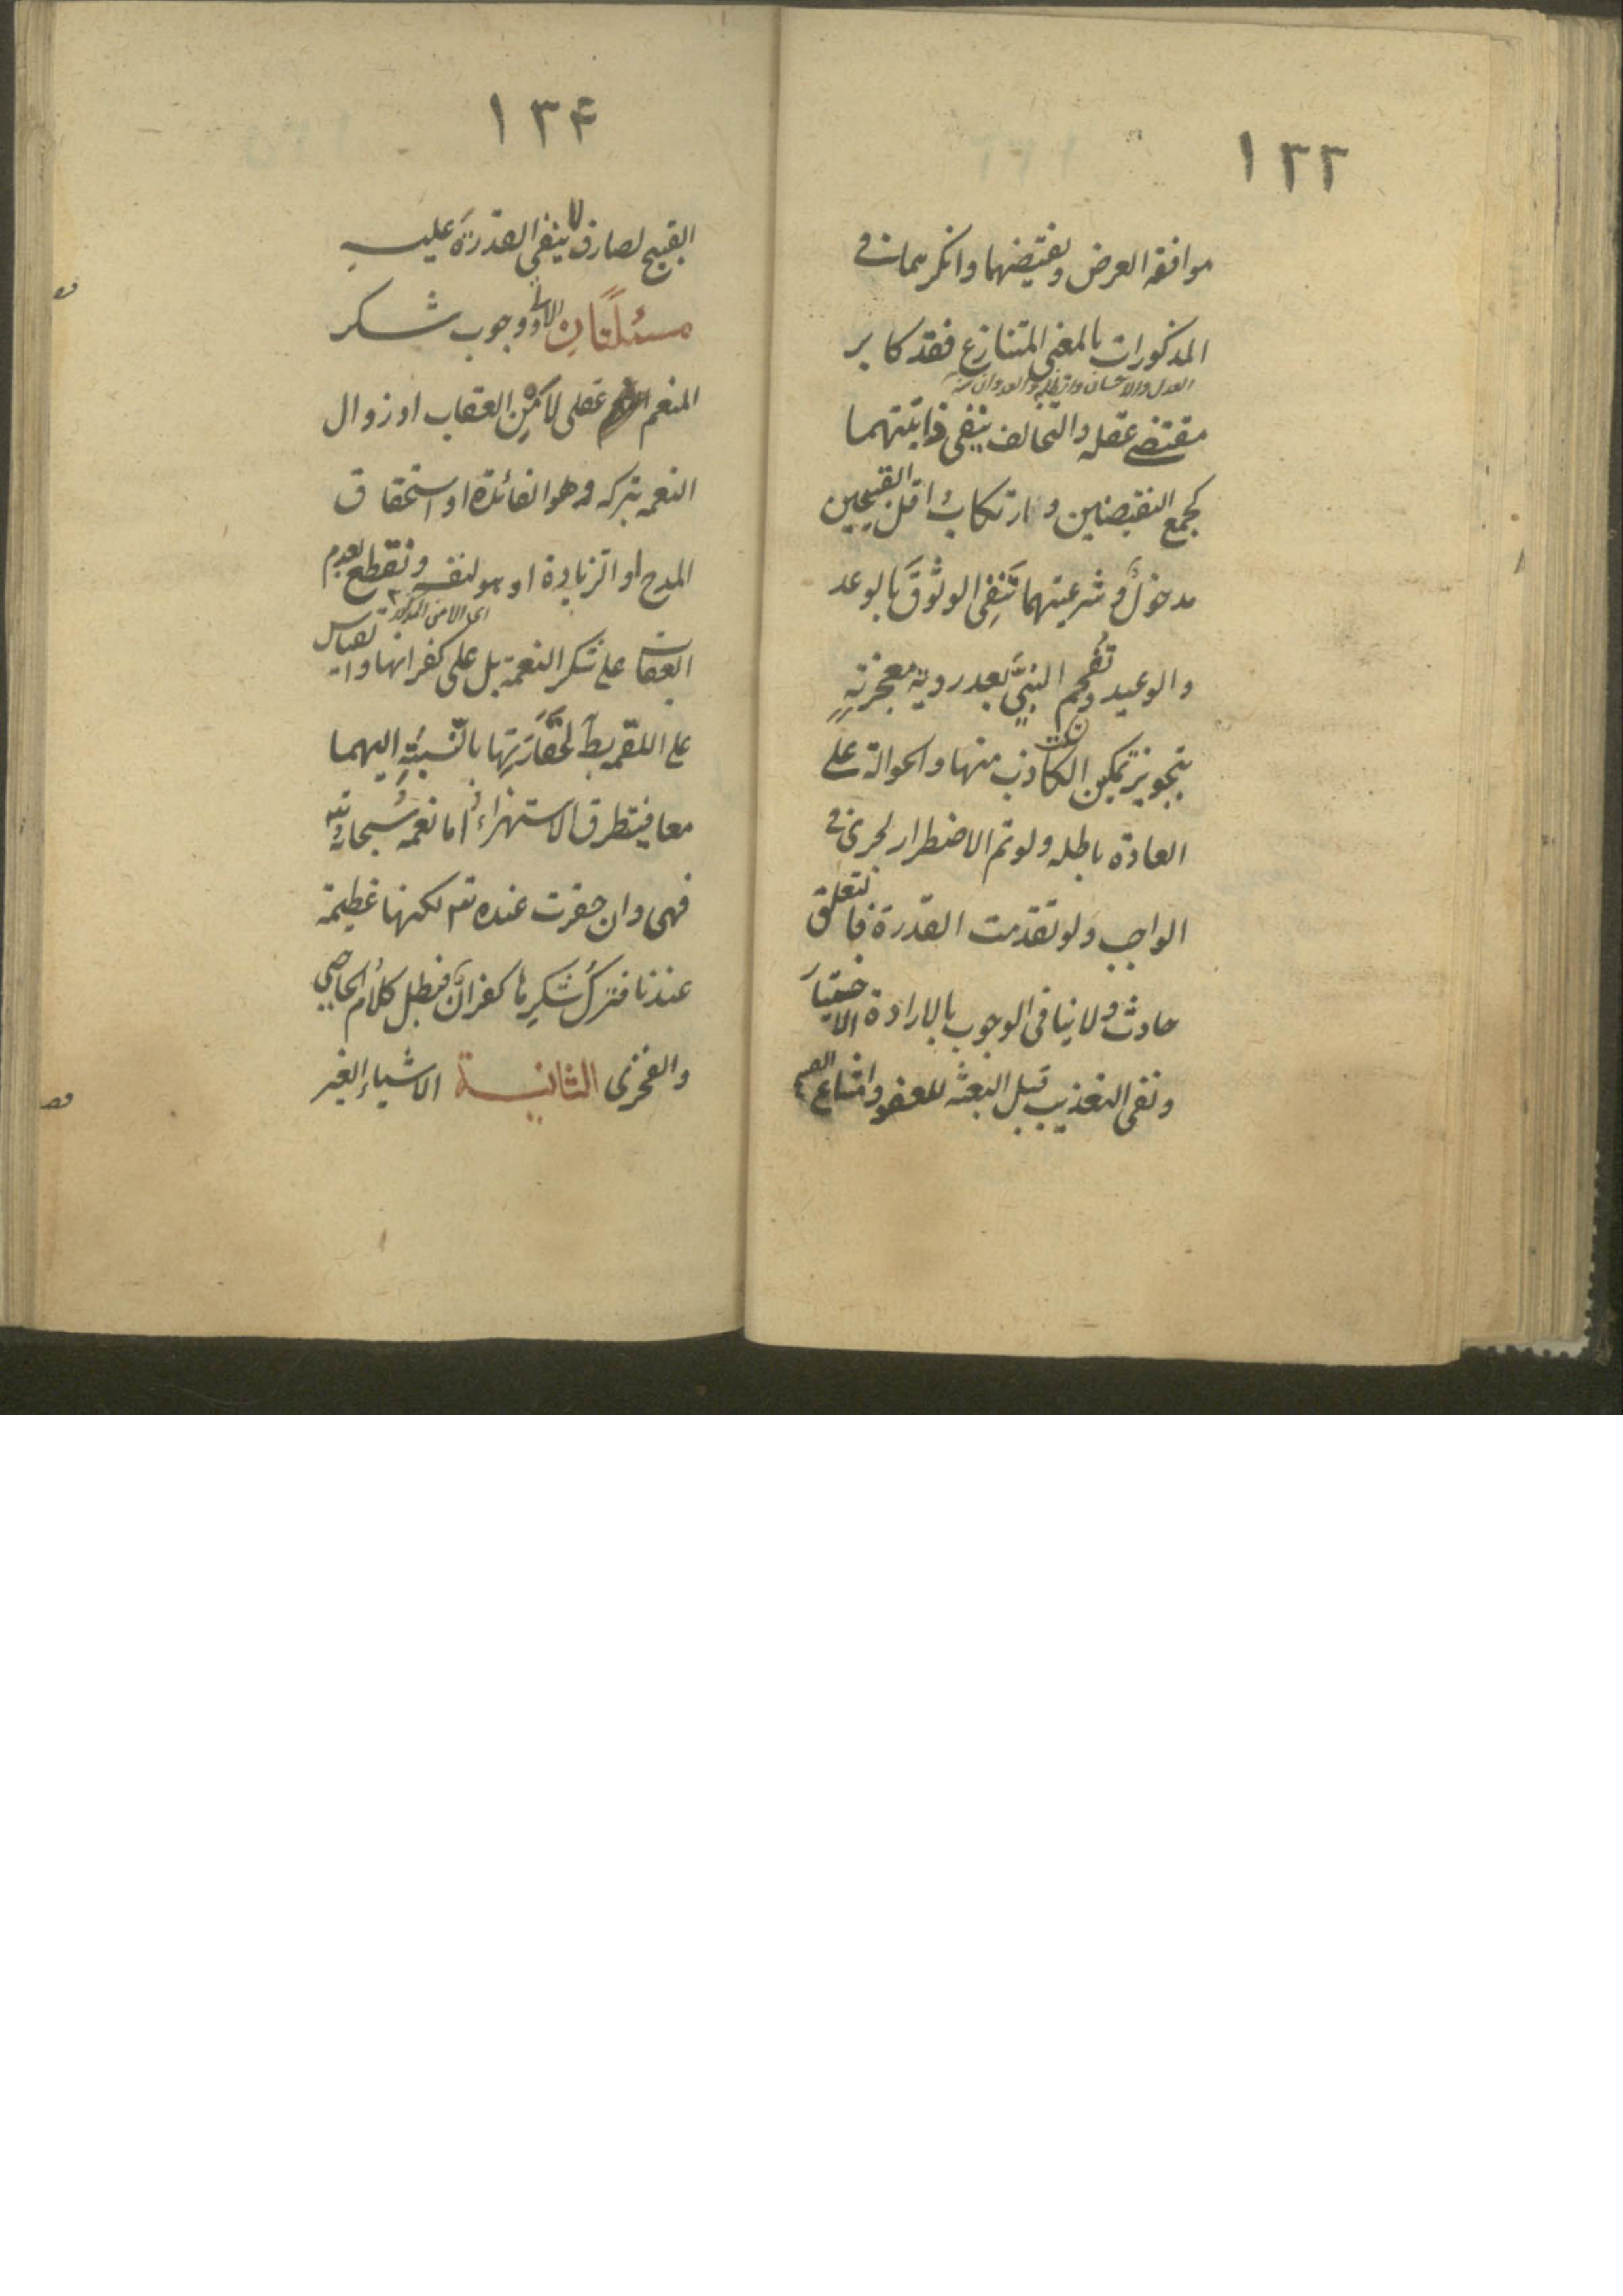 ١٣٣
موافقه العرض ونقيضها وانكرهما في
المذكورات بالمعنى المتنازع فقد كابر
العدل والاحسان والظلم والعدوان
مقتضى عقله والتخالف ينفى ذاتيتهما
كجمع النقيضين وارتكاب اقل القبيحين
مدخول وشرعيتهما تنفي الوثوق بالوعد
والوعيد وتفحم النبي بعد روية معجزته
بتجويز تمكين الكاذب منها والحوالة على
العادة باطله ولو تم الاضطرار لجرى في
الواجب ولو تقدمت القدرة فالتعلق
حادث ولا ينافى الوجوب بالارادة الاختيار
ونفى التعذيب قبل البعثه للعفو وامتناع
١٣۴
القبيح لصارف لا ينفي القدرة عليه
مسئلتان الاولى وجوب شكر
المنعم عقلى لا من العقاب او زوال
النعمه بتركه وهو الفائدة او استحقاق
المدح او الزيادة او هو لنفسه ونقطع بعدم
اى الامن المذكور
العقاب على شكر النعمة بل على كفرانها والقياس
على اللقمة باطل لحقارتها بالنسبة اليهما
معا فيتطرق الاستهزاء اما نعمه سبحانه
فهى وان حقرت عنده لكنها عظيمة
عندنا فترك شكرها كفران فبطل كلام الحاجبي
والفخرى الثانية الاشياء الغير